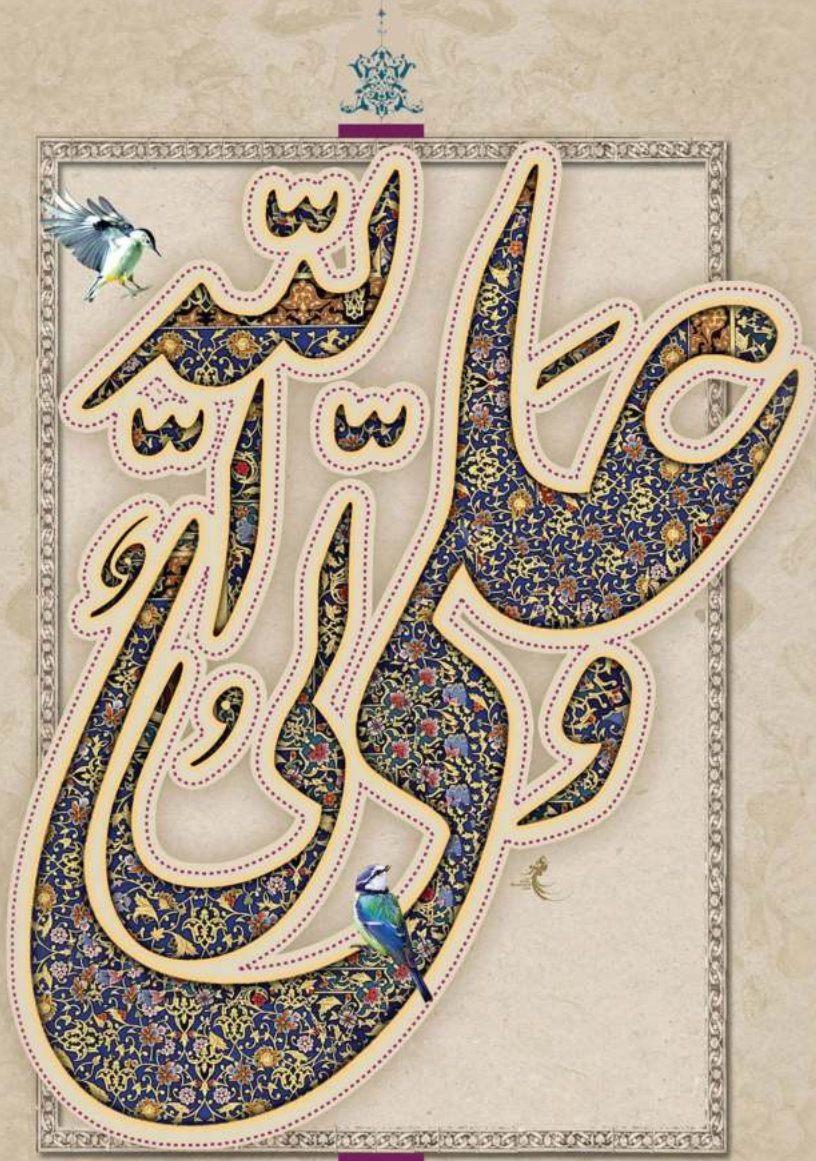 علیٌّ ولیُّ اللّٰه